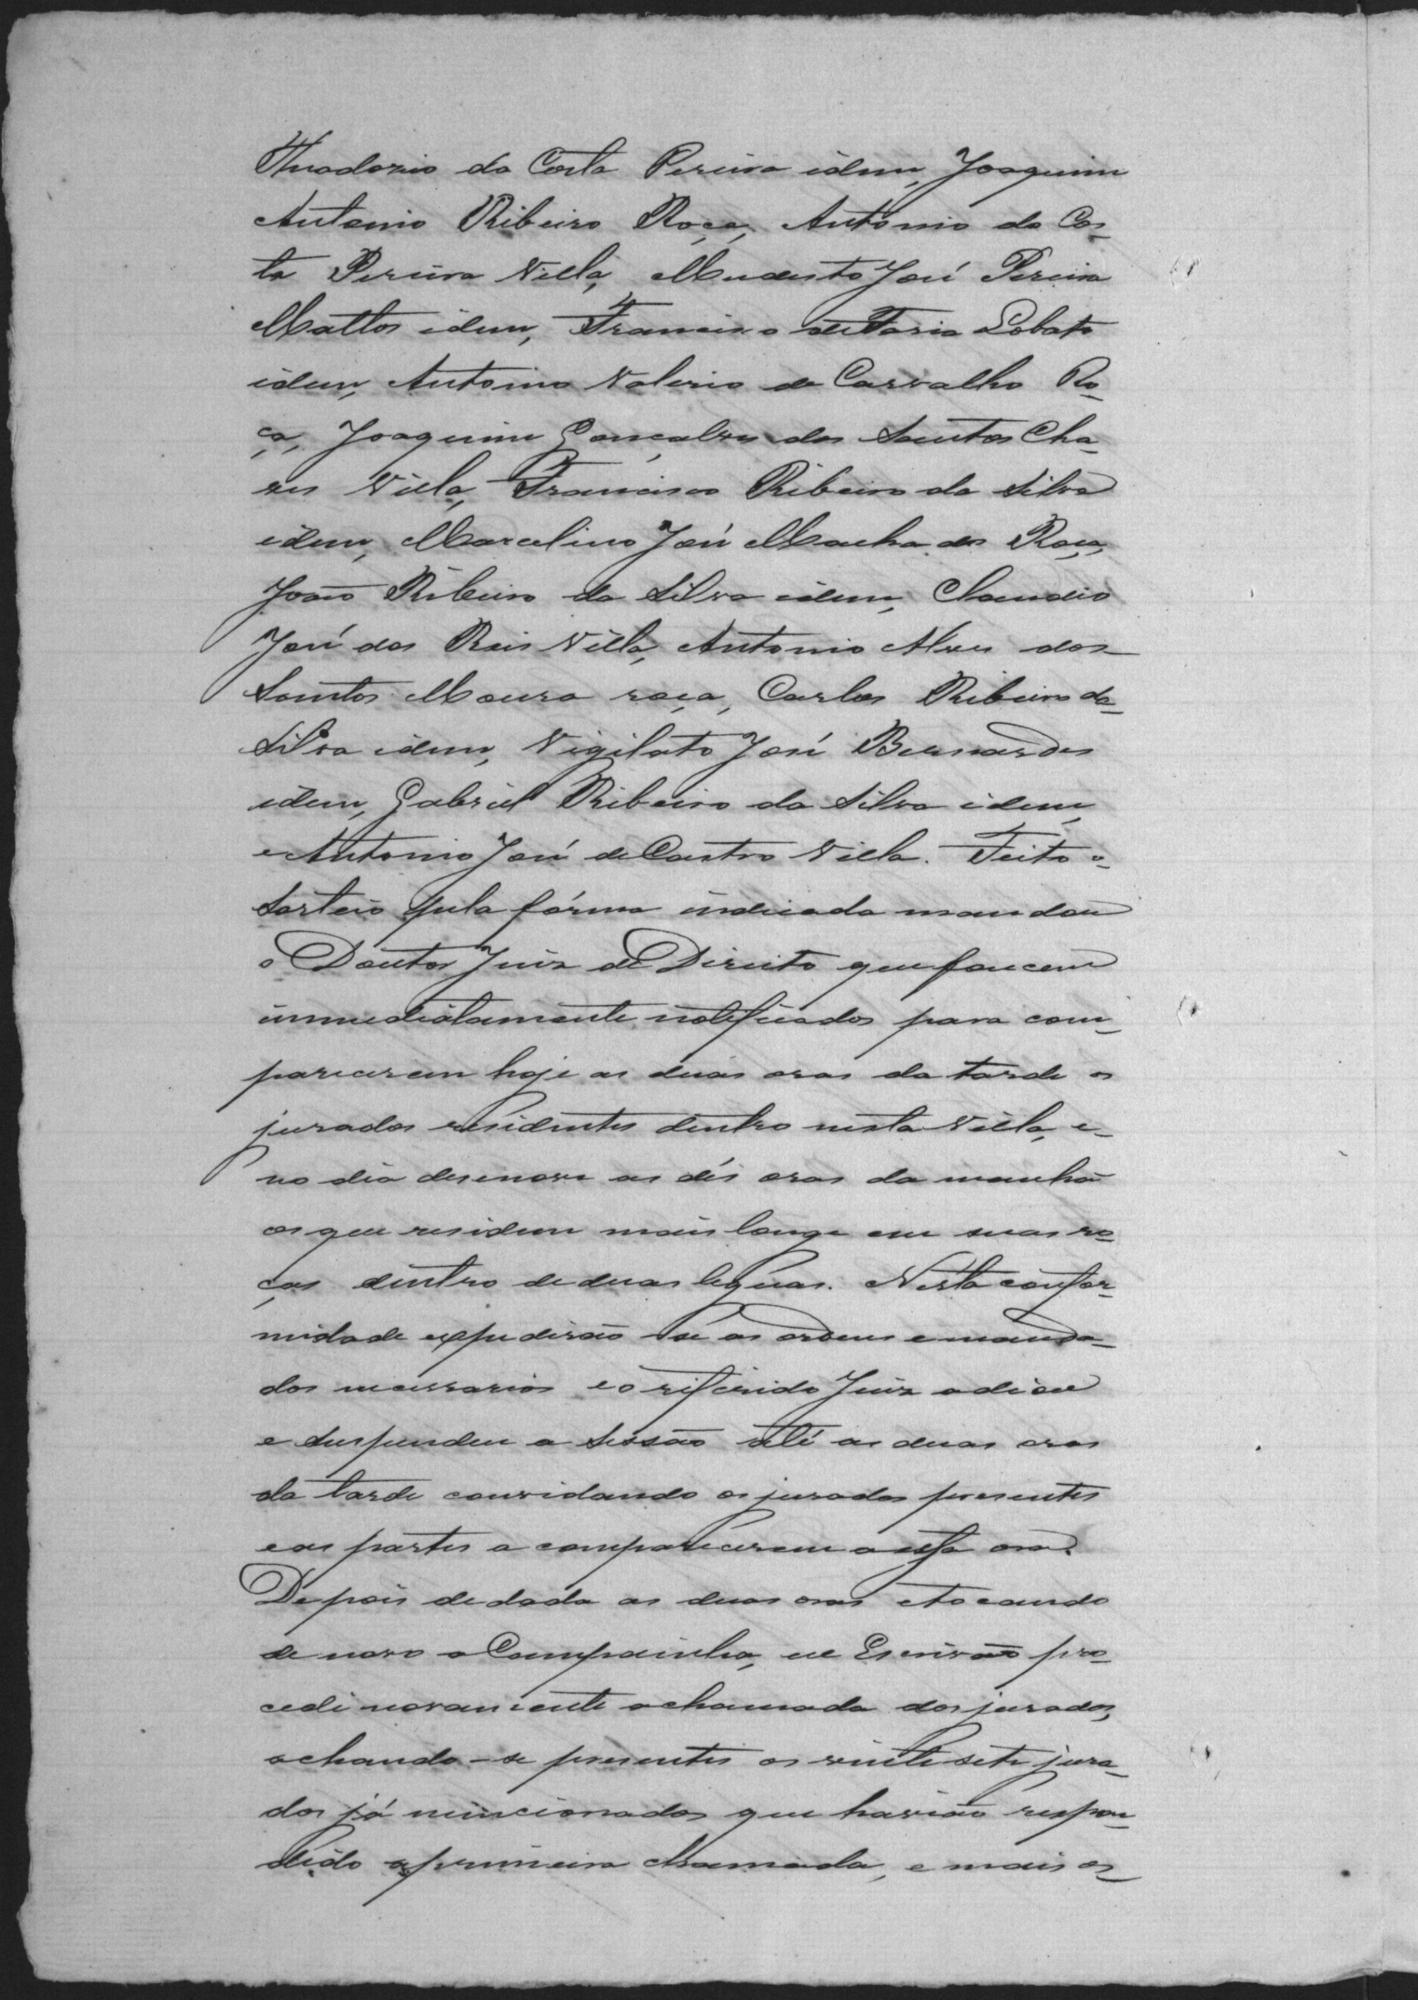 Theodozio da Costa Pereira idem, Joaquim
Antonio Ribeiro Roça, Antonio da Cos-
ta Pereira Villa, Mudesto José Pereira
Mattos idem, Francisco de Faria Lobato
idem, Antonio Valerio de Carvalho Ro-
ça, Joaquim Gonçalves dos Santos Cha-
ves Villa, Francisco Ribeiro da Silva
idem, Marcelino José Machado Roça,
João Ribeiro da Silva idem, Claudio
José dos Reis Villa, Antonio Alves dos
Santos Moura roça, Carlos Ribeiro da
Silva idem, Vigilato José Bernardes
idem, Gabriel Ribeiro da Silva idem,
e Antonio José de Castro Villa. Feito o
sorteio pela fórma indicada mandou
o Doutor Juiz de Direito que foucem
immediatamente notificados para com-
parecerem hoje as duas oras da tarde os
jurados residentes dentro nesta Villa, e
no dia desenove as dés oras da manhã
os que residem mais longe em suas ro-
ças dentro de duas leguas. Nesta confor-
midade expedirão-se as ordens e manda-
dos necessarios e o referido Juiz adiou
e suspendeu a sessão até as duas oras
da tarde convidando os jurados presentes
e as partes a comparecerem a essa ora.
Depois de dada as duas oras e tocando
de novo a Campainha, eu Escrivão pro-
cedi novamente a chamada dos jurados,
achando-se presentes os vinte sete jura-
dos já mincionados que havião respon-
dido a primeira chamada, e mais os